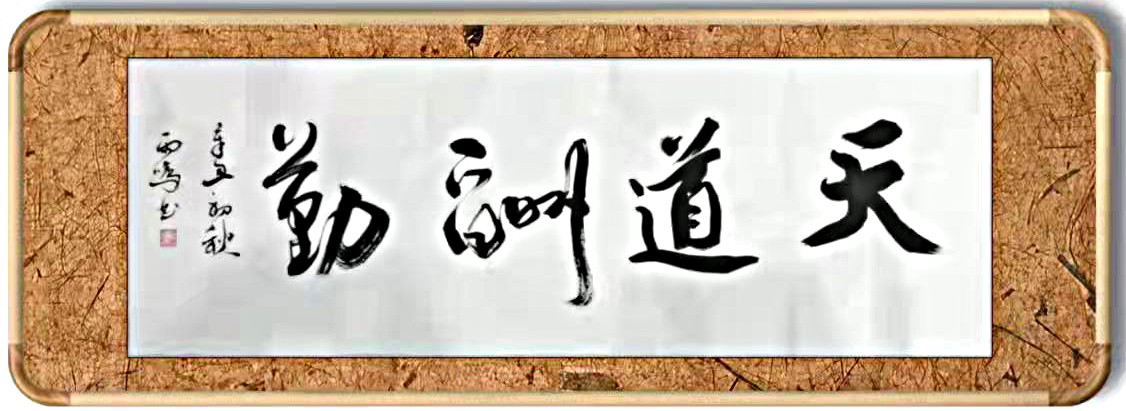 天道酬勤
辛丑初秋
雨鸣书